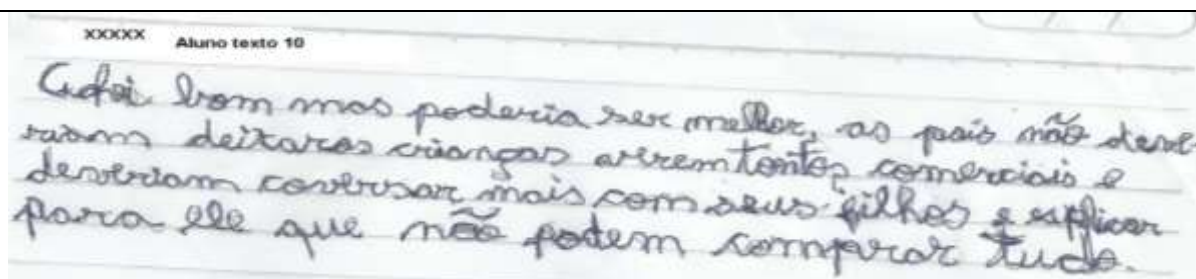 xxxxx Aluno texto 10
bom mas poderia ser melhor, as pais não deve-
riam deixar as crianças tontos comerciais e
deveriam conversar mais com seus filhos e esplicar
para ele que não podem comprar tudo.